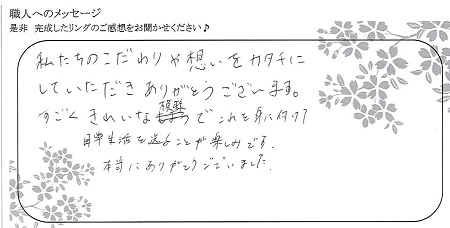 職人へのメッセージ
是非 完成したリングのご感想をお聞かせください♪
私たちのこだわりや想いをカタチに
していただきありがとうございます。
すごくきれいな模様でこれを身に付け
日常生活を送ることが楽しみです。
本当にありがとうございました。